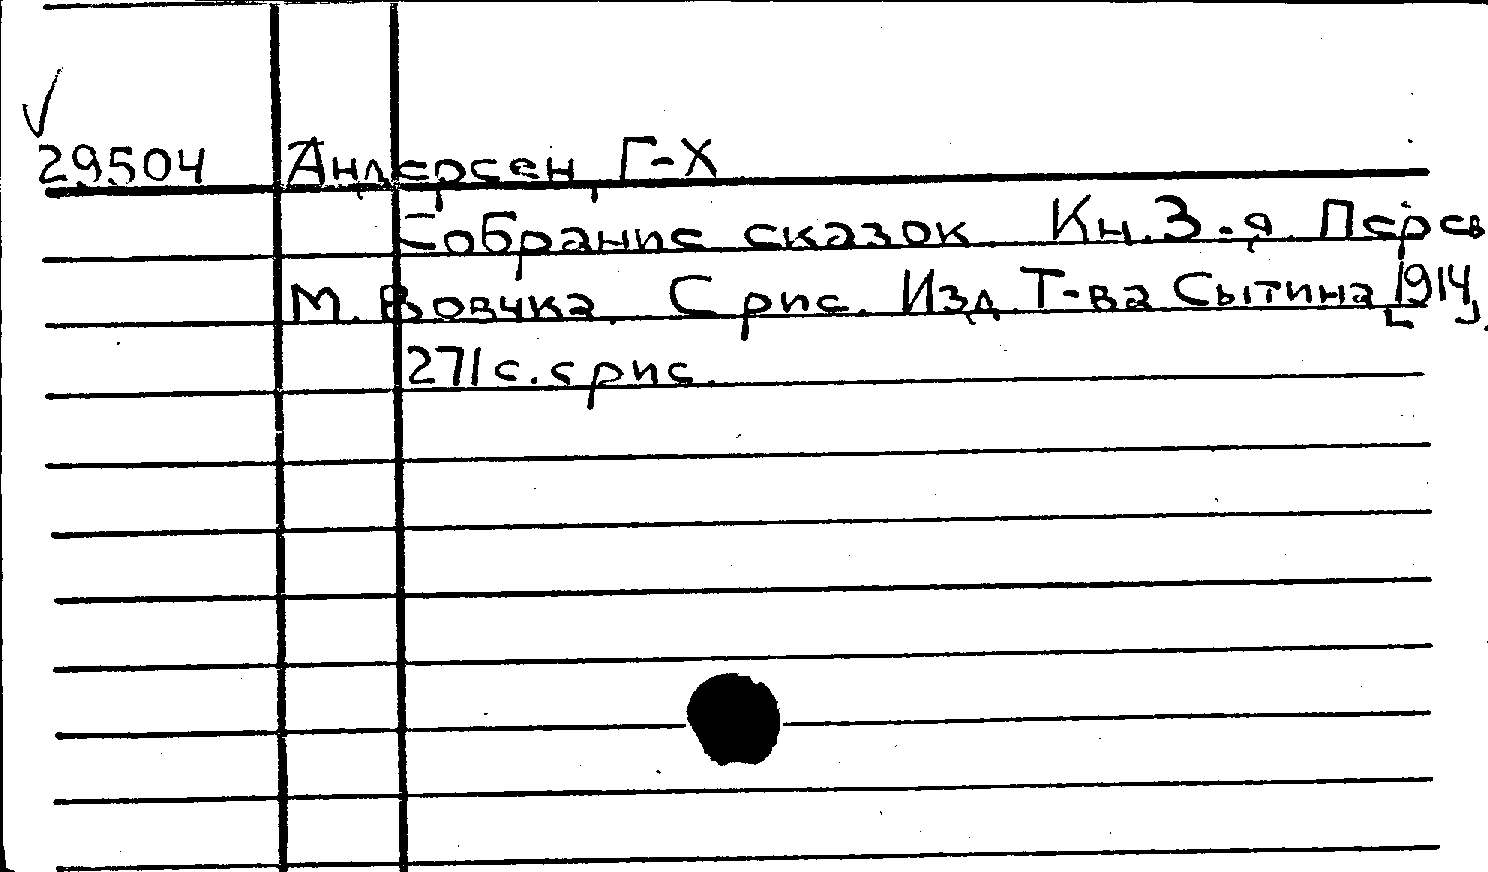 29504 Андерсен, Г-Х
Собрание сказок Кн. 3-я. Перев
М. Вовчка. С рис. Изд. Т-ва Сытина [1914],
271 с. с рис.